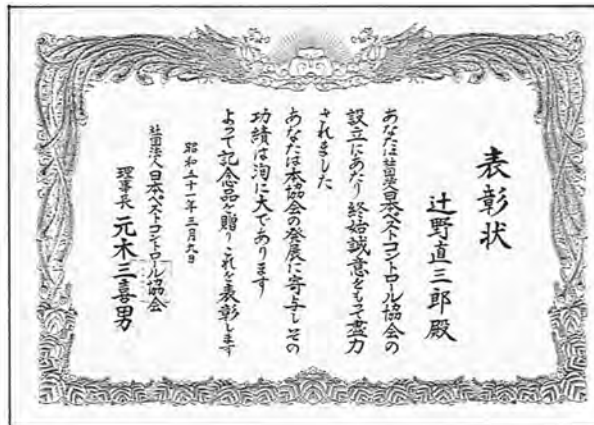 表彰状
辻野直三郎殿
あなたは社団法人日本ペストコントロール協会の
設立にあたり終始誠意をもって盡力
されました
あなたは本協会の発展に寄与しその
功績は洵に大であります
よって記念品を贈りこれを表彰します
昭和五十一年三月九日
社団法人日本ペストコントロール協会
理事長 元木三喜男